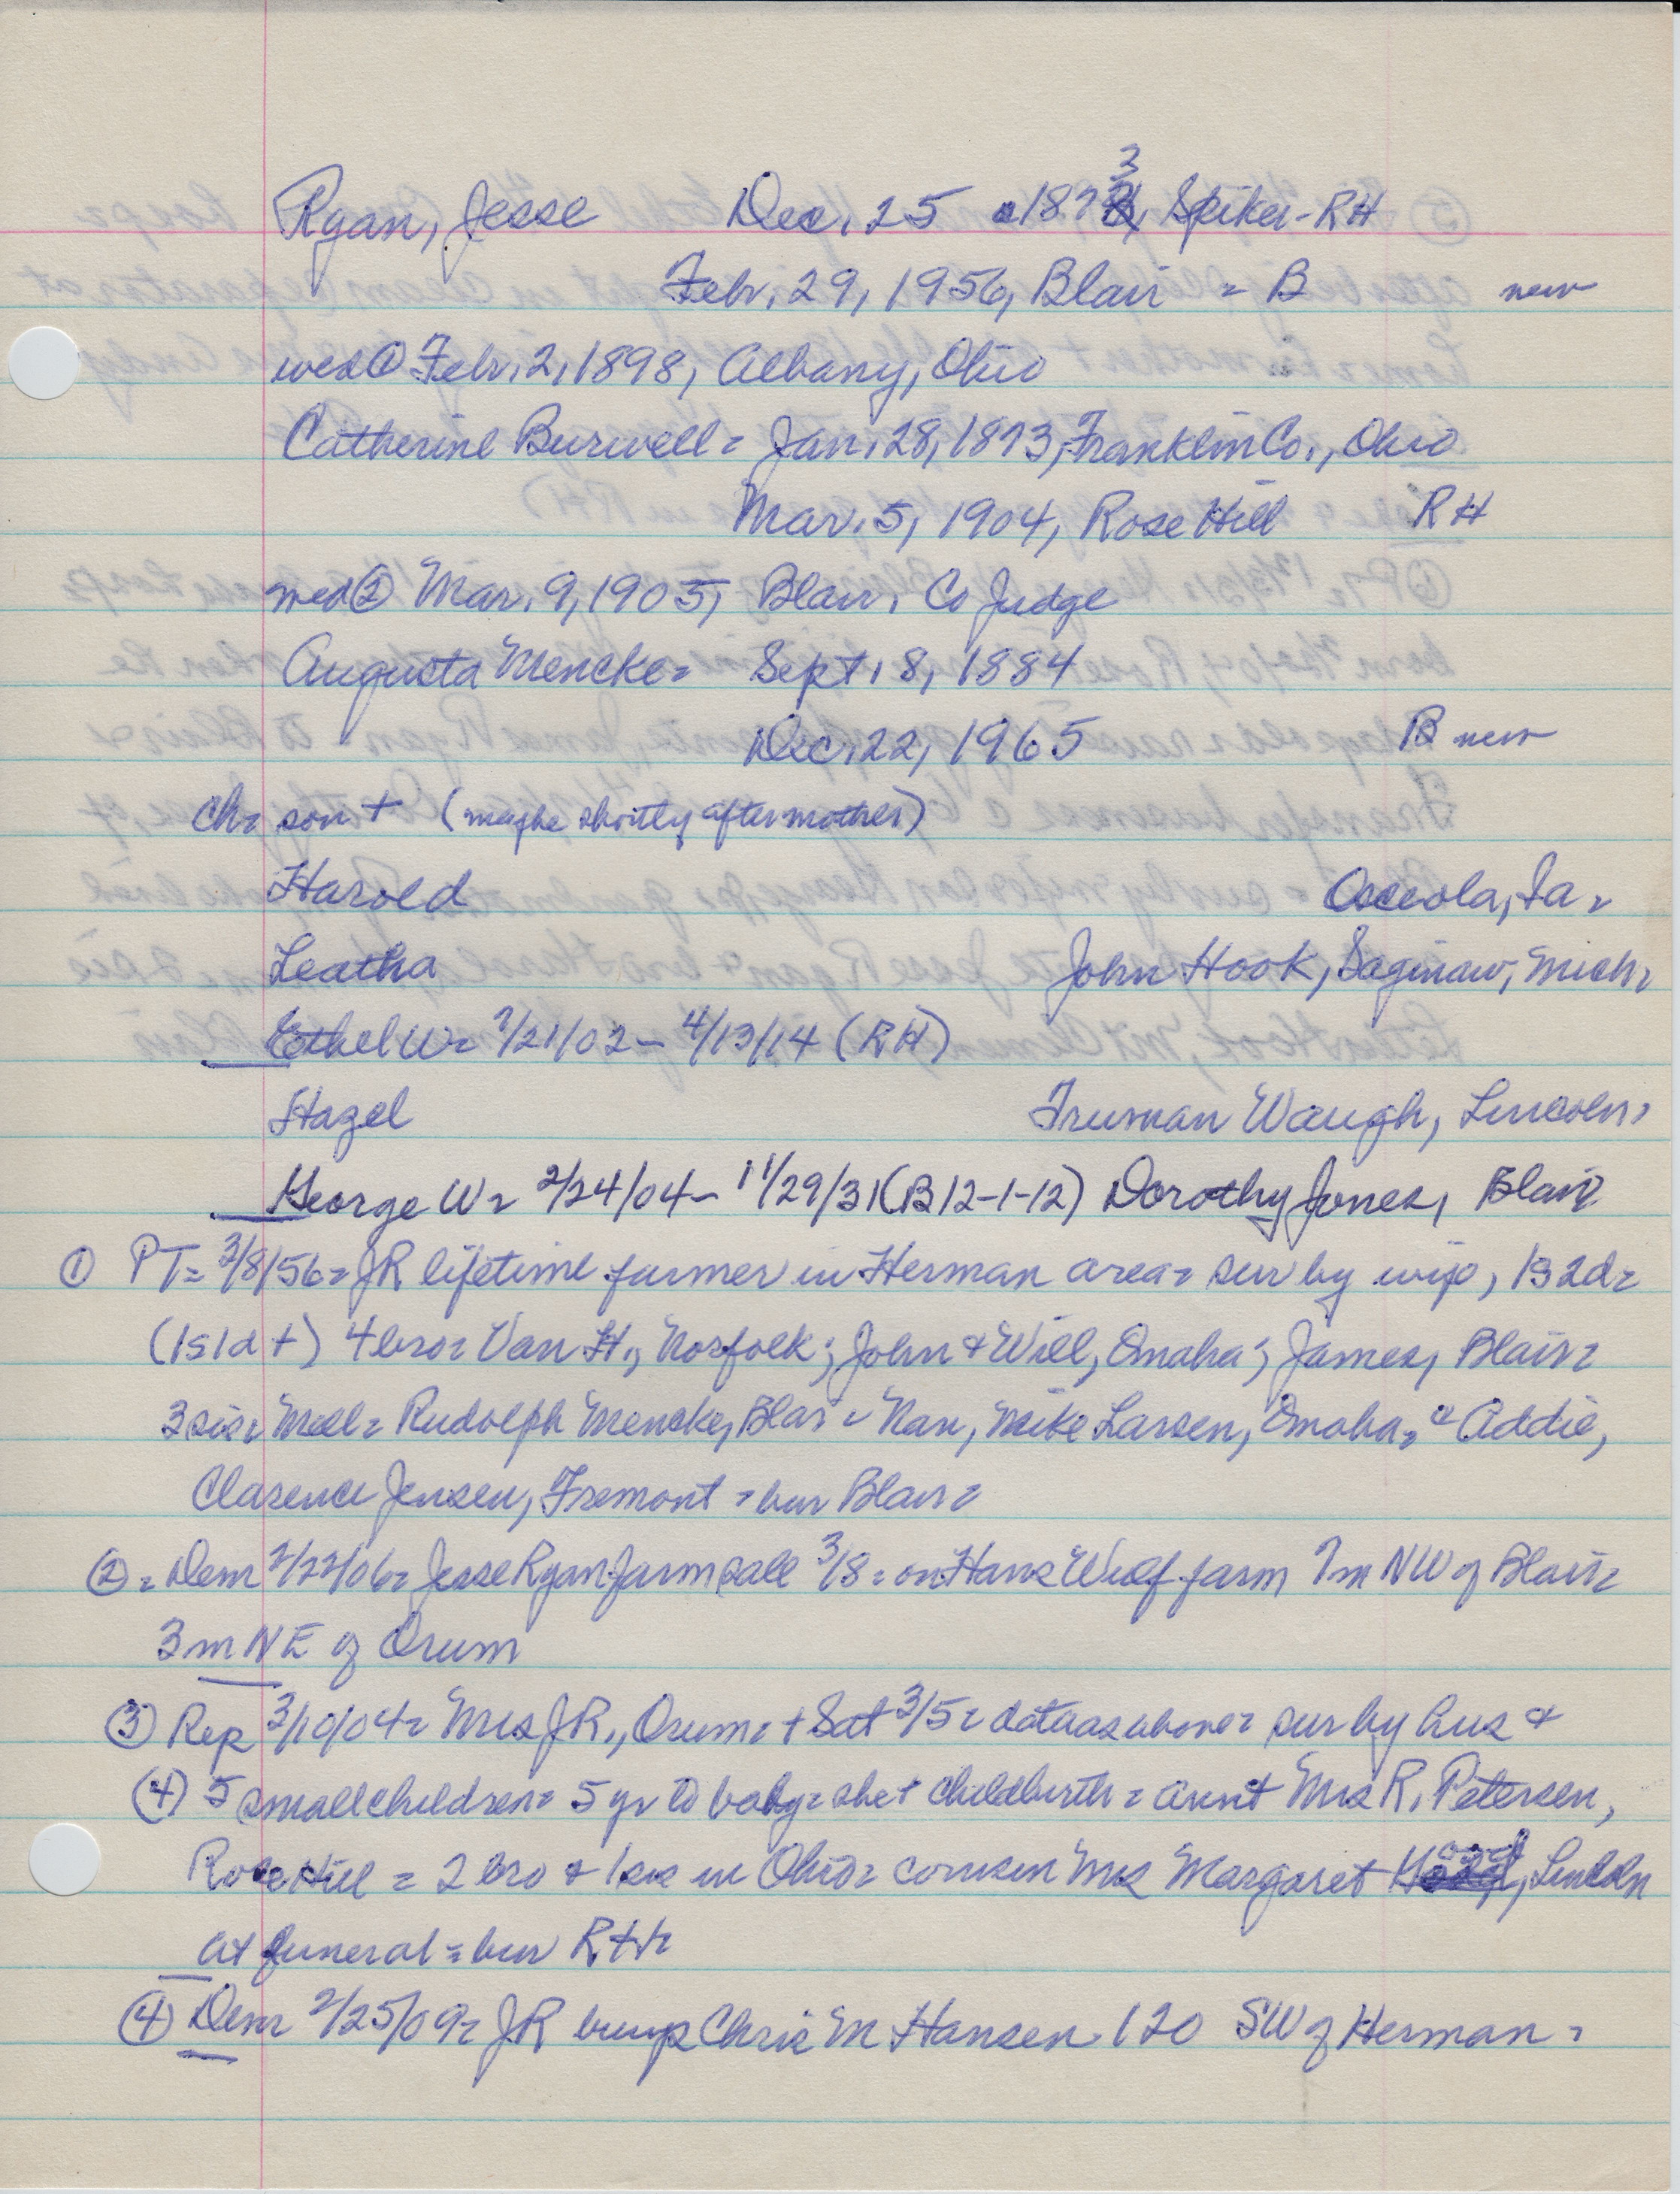 Ryan, Jesse Dec. 25 1873, Spiker - RH
Febr. 29, 1956, Blair = B new
wed ① Febr. 2, 1898, Albany, Ohio
Catherine Burwell = Jan. 28, 1873, Franklin Co., Ohio
Mar. 5, 1904, Rose Hill RH
wed ② Mar. 9, 1905, Blair, Co Judge
Augusta Mencke = Sept. 8, 1884
Dec. 22, 1965 B new
ch = son + (maybe shortly after mother)
Harold Osceola, Ia =
Leatha John Hook, Saginaw, Mich =
Ethel W = 7/21/02 - 4/13/14 (RH)
Hazel Truman Waugh, Lincoln =
George W = 2/24/04 - 11/29/31 (B 12-1-12) Dorothy Jones, Blair
① PT = 3/8/56 = JR lifetime farmer in Herman area = sur by wife, 1s 2d =
(1s 1d +) 4 bro = Van H., Norfolk; John + Will, Omaha; James, Blair =
3 sis = Mell = Rudolph Mencke, Blair = Nan, Mike Larsen, Omaha, + Addie,
Clarence Jensen, Fremont = bur Blair =
② = Dem 2/22/06 = Jesse Ryan farm sale 3/8 = on Hans Wulf farm 7m NW of Blair =
3m NE of Orum
③ Rep 3/10/04 = Mrs JR., Orum = + Sat 3/5 = data as above = sur by hus +
(4) 5 small children = 5 yr to baby = she + childbirth = aunt Mrs R. Petersen,
Rose Hill = 2 bro + 1 sis in Ohio = cousin Mrs Margaret Lincoln
at funeral = bur RH =
④ Dem 2/25/09 = JR buys Chris M Hansen 120 SW of Herman =